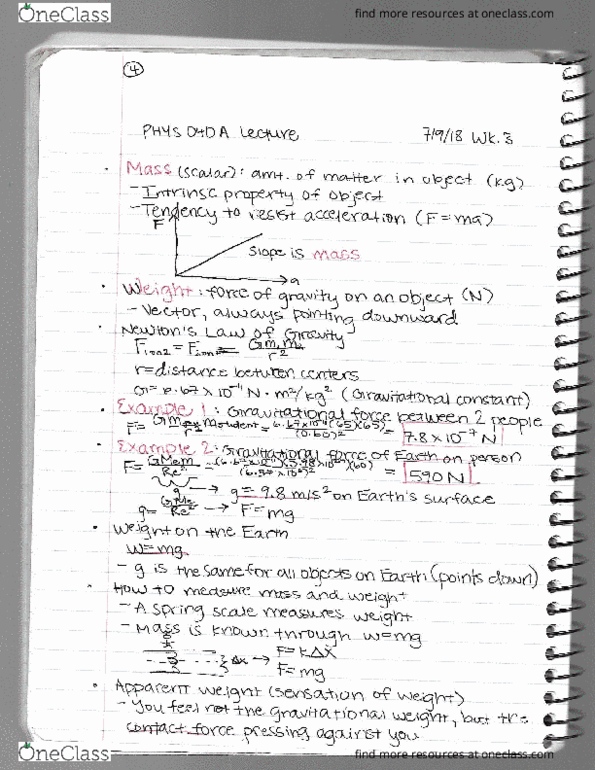 OneClass
find more resources at oneclass.com
4
PHYS 040A Lecture 7/9/18 Wk.3
Mass (scalar): amt. of matter in object (kg)
- Intrinsic property of object
- Tendency to resist acceleration (F=ma)
F
slope is mass
a
Weight: force of gravity on an object (N)
- Vector, always pointing downward
Newton's Law of Gravity
F1 on 2 = F2 on 1 = Gm1m2/r²
r=distance between centers
G=6.67 x 10⁻¹¹ N·m²/kg² (Gravitational constant)
Example 1: Gravitational force between 2 people
= 7.8 x 10⁻⁷ N
Example 2: Gravitational force of Earth on person
F = GMem/Re² = 590N
g → g=9.8 m/s² on Earth's surface
g = GMe/Re² → F=mg
Weight on the Earth
W=mg
- g is the same for all objects on Earth (points down)
How to measure mass and weight
- A spring scale measures weight
- Mass is known through w=mg
Δx → F=kΔx
F=mg
Apparent weight (sensation of weight)
- You feel not the gravitational weight, but the
contact force pressing against you
OneClass
find more resources at oneclass.com